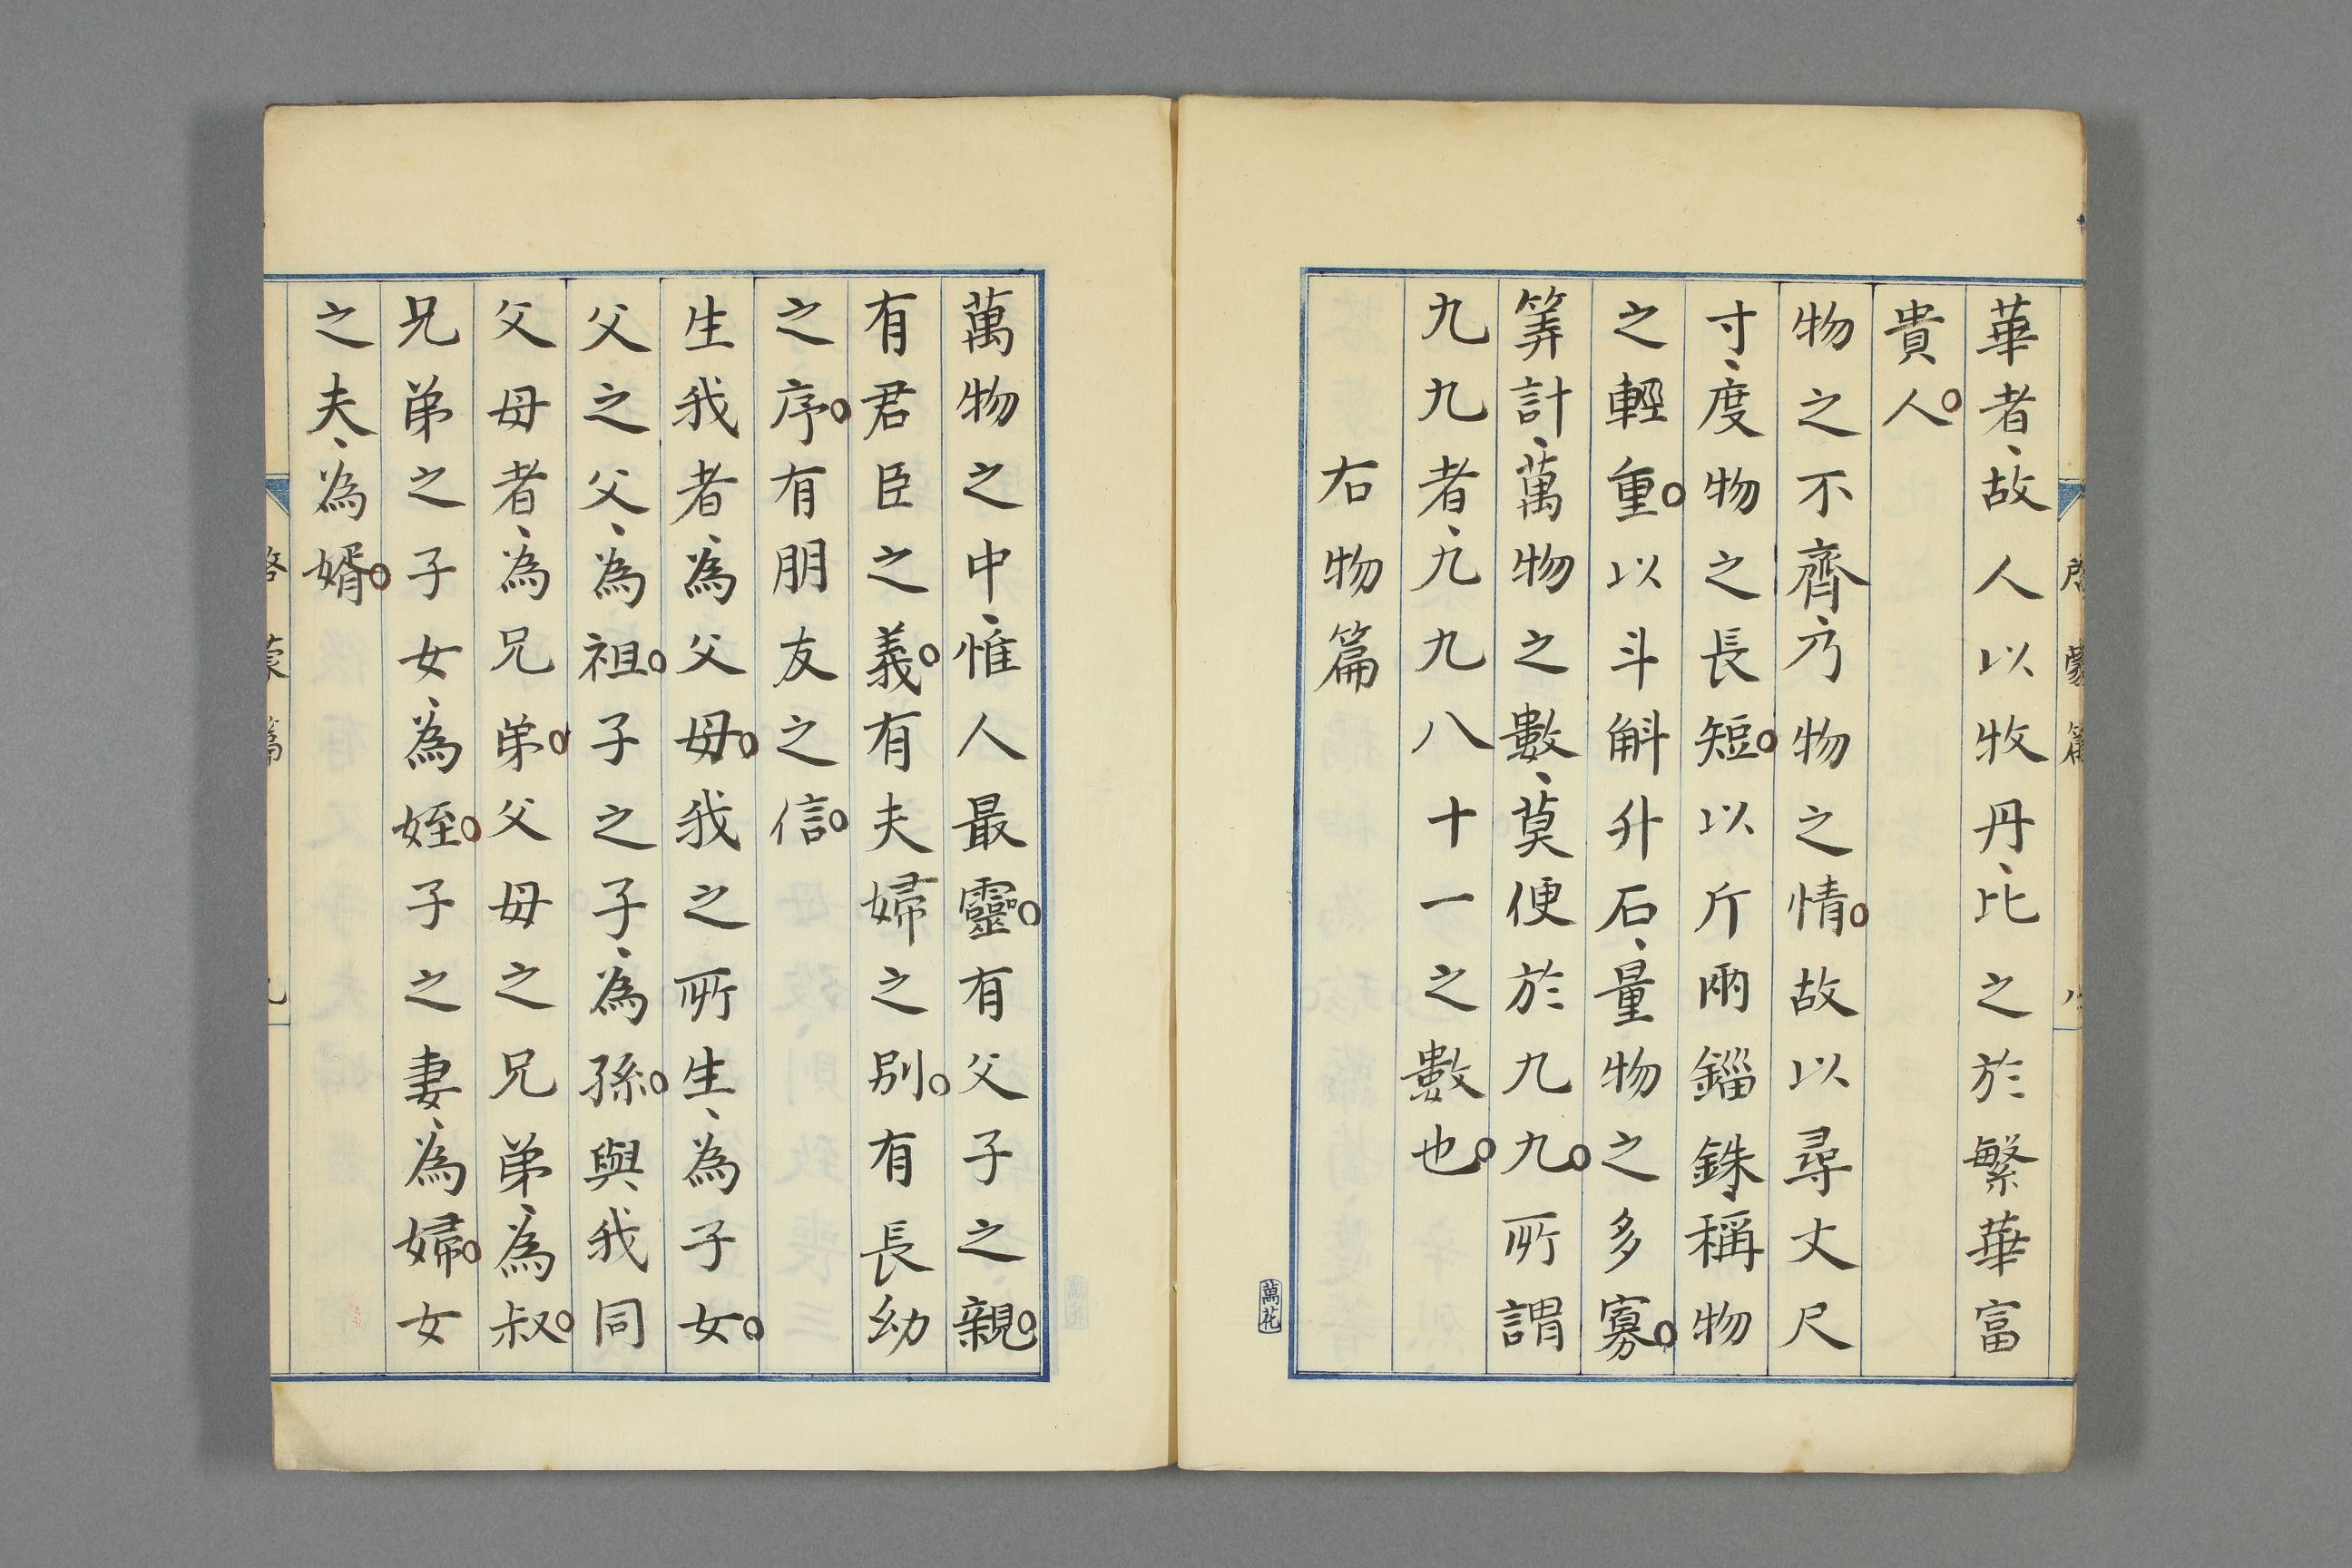 華者、故人以牧丹、比之於繁華富
貴人。
物之不齊、乃物之情。故以尋丈尺
寸、度物之長短。以斤兩錙銖、稱物
之輕重。以斗斛升石、量物之多寡。
筭計、萬物之數、莫便於九九。所謂
九九者、九九八十一之數也。
右物篇
萬物之中、惟人最靈。有父子之親。
有君臣之義。有夫婦之別。有長幼
之序。有朋友之信。
生我者、為父母。我之所生、為子女。
父之父、為祖。子之子、為孫。與我同
父母者、為兄弟。父母之兄弟、為叔。
兄弟之子女、為姪。子之妻、為婦。女
之夫、為婿。
啓蒙篇
萬花